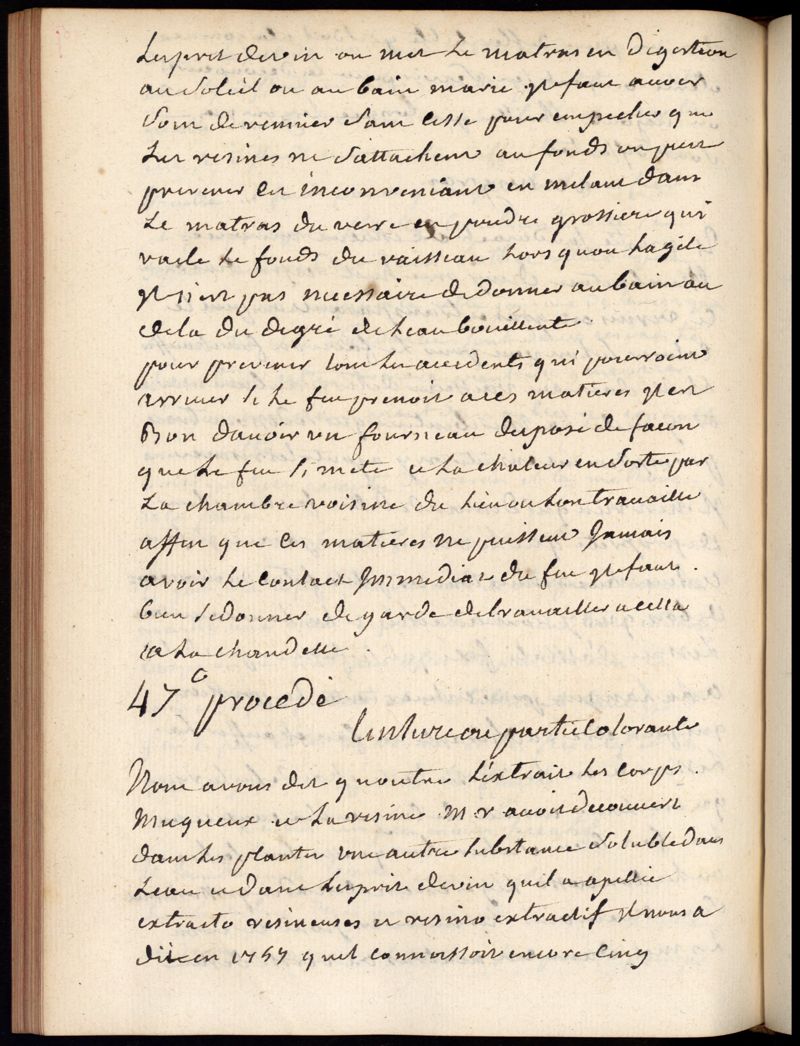 Lesprit devin on met Le matras en Digestion
au Soleil ou au bain marie il faut avoir
Soin de remuer Sans Cesse pour empecher que
Les resines ne Sattachent au fonds on peut
prevenir Cet inconveniant en melant dans
Le matras du verre en poudre grossiere qui
racle Le fonds du vaisseau Lors quon Lagite
il nest pas necessaire de donner au bain au
dela du degré de Leau bouillente
pour prevenir tous Les accidents qui pourroint
arriver Si Le feu prenoit a ces matieres il est
Bon davoir un fourneau disposé de facon
que Le feu Si mete et La chaleur en Sorte par
La chambre voisine du Lieu ou Lon travaille
affin que Ces matieres ne puissent Jamais
avoir Le Contact Immediat du feu il faut
bien Se donner de garde de travailler a cella
a La chandelle .
47e procedé
tinture ou partie Colorante
Nous avons dit quoutre Lextrait Les Corps
Muqueux et La resine Mr r avoit decouvert
dans Les plantes une autre Substance Soluble dans
Leau et dans Lesprit devin quil a apellée
extracto resineuses et resino extractif il nous a
dit en 1757 quil connoissoit encore Cinq